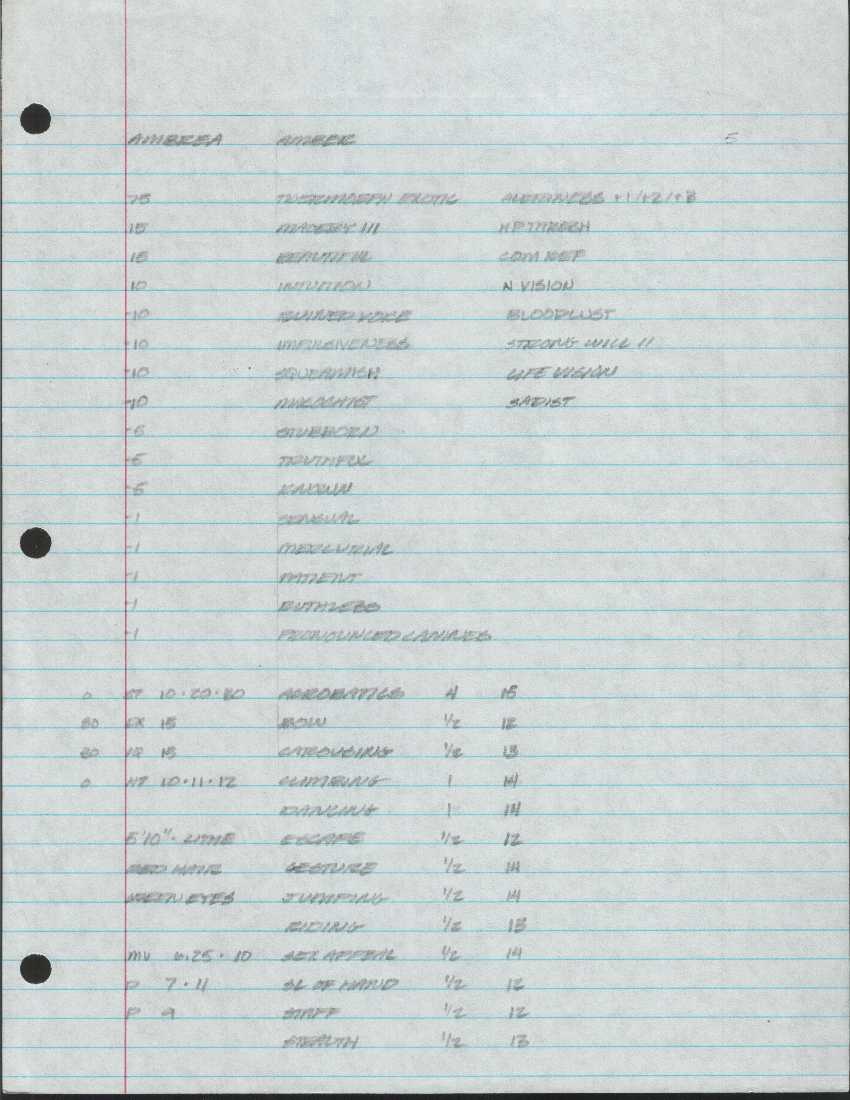 AMBREA AMBER 5
75 EXOTIC ALERTNESS +1/+2/+3
15 III HP THRESH
15 BEAUTIFUL COM REF
10 INTUITION N VISION
-10 VOICE BLOODLUST
-10 IMPULSIVENESS STRONG WILL II
-10 SQUEAMISH LIFE VISION
-10 MASOCHIST SADIST
-5 STUBBORN
-5 TRUTHFUL
-5
-1 SENSUAL
-1 MERCURIAL
-1 PATIENT
-1 RUTHLESS
-1 PRONOUNCED CANINES
0 ST 10·20·30 ACROBATICS 4 15
80 DX 15 BOW 1/2 12
80 IQ 15 CAROUSING 1/2 13
0 HT 10·11·12 CLIMBING 1 14
DANCING 1 14
5'10"· LITHE ESCAPE 1/2 12
RED HAIR GESTURE 1/2 14
GREEN EYES JUMPING 1/2 14
RIDING 1/2 13
MV 6.25·10 SEX APPEAL 1/2 14
D 7·11 SL OF HAND 1/2 12
P 9 STAFF 1/2 12
STEALTH 1/2 13